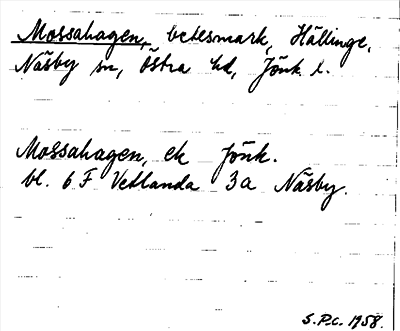 Mossahagen, betesmark, Hällinge,
Näsby sn, Östra hd, Jönk l.
Mossahagen, ek Jönk.
bl. 6 F Vetlanda 3a Näsby.
S.P.C. 1958.